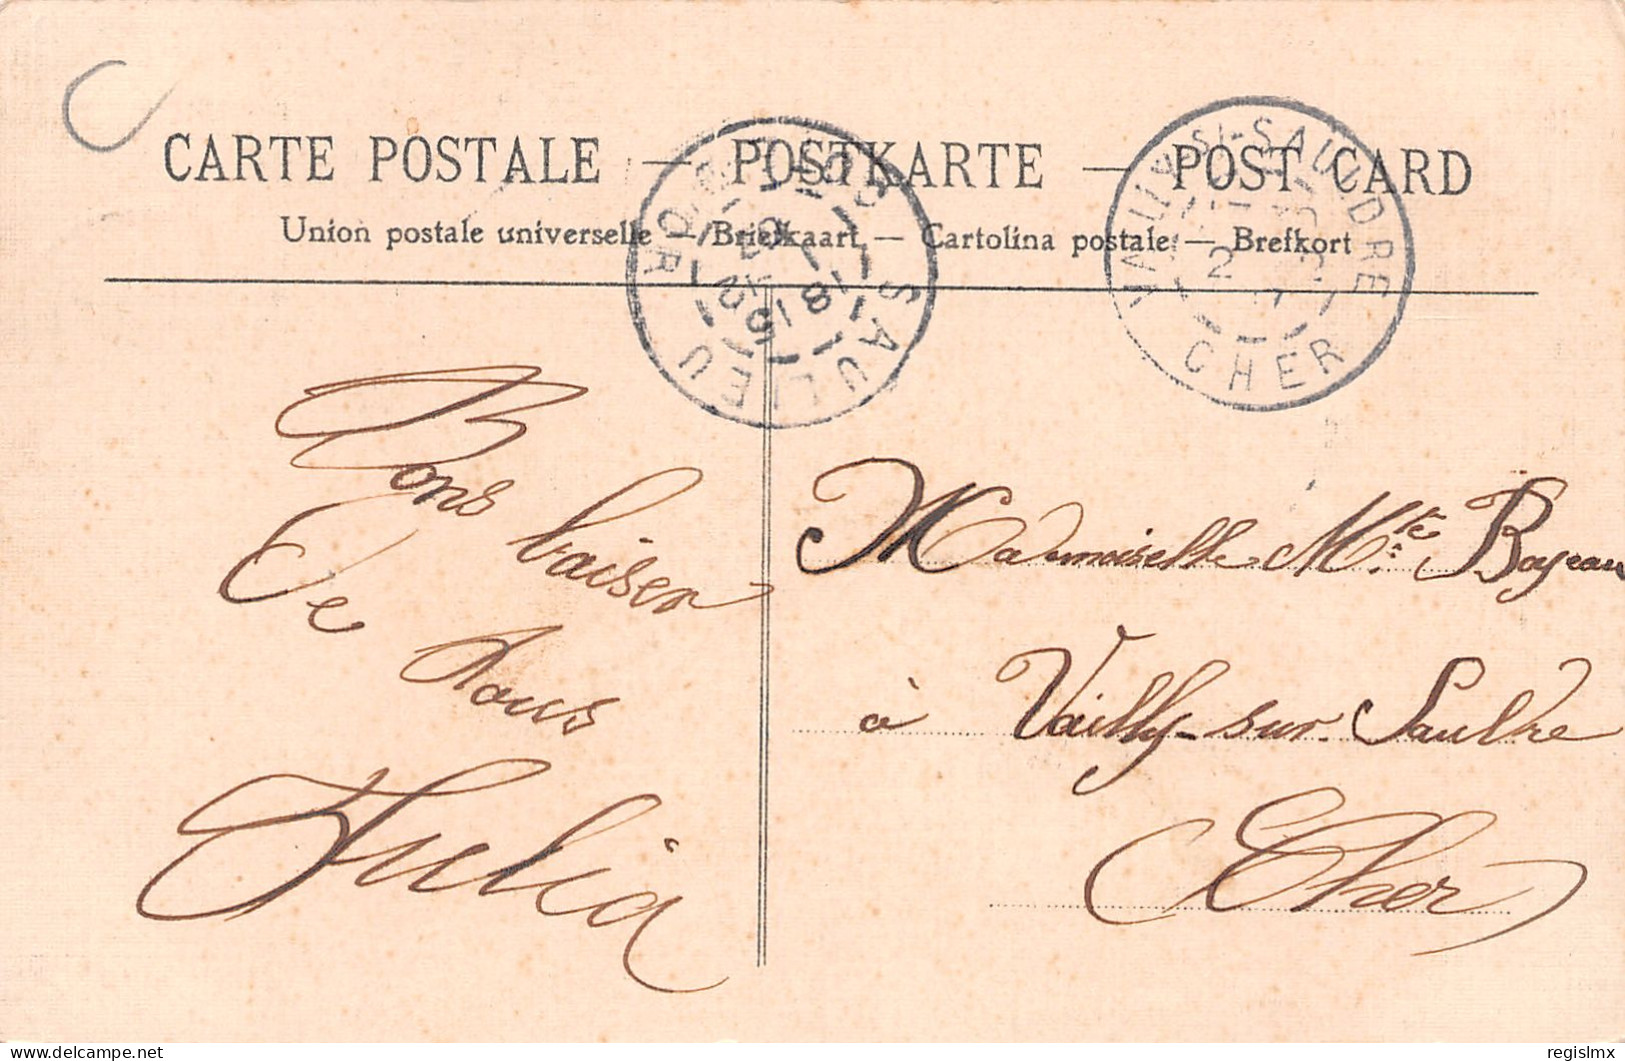 CARTE POSTALE — POSTKARTE — POST CARD
Union postale universelle — Briefkaart — Cartolina postale — Brefkort
SAULIEU
CÔTE D'OR
18 15
2
07
VAILLY-SR-SAULDRE
2
CHER
Bons baiser
De
Nous
Julia
Mademoiselle Mte Bojeau
à Vailly-sur-Sauldre
Cher
delcampe.net
regislmx